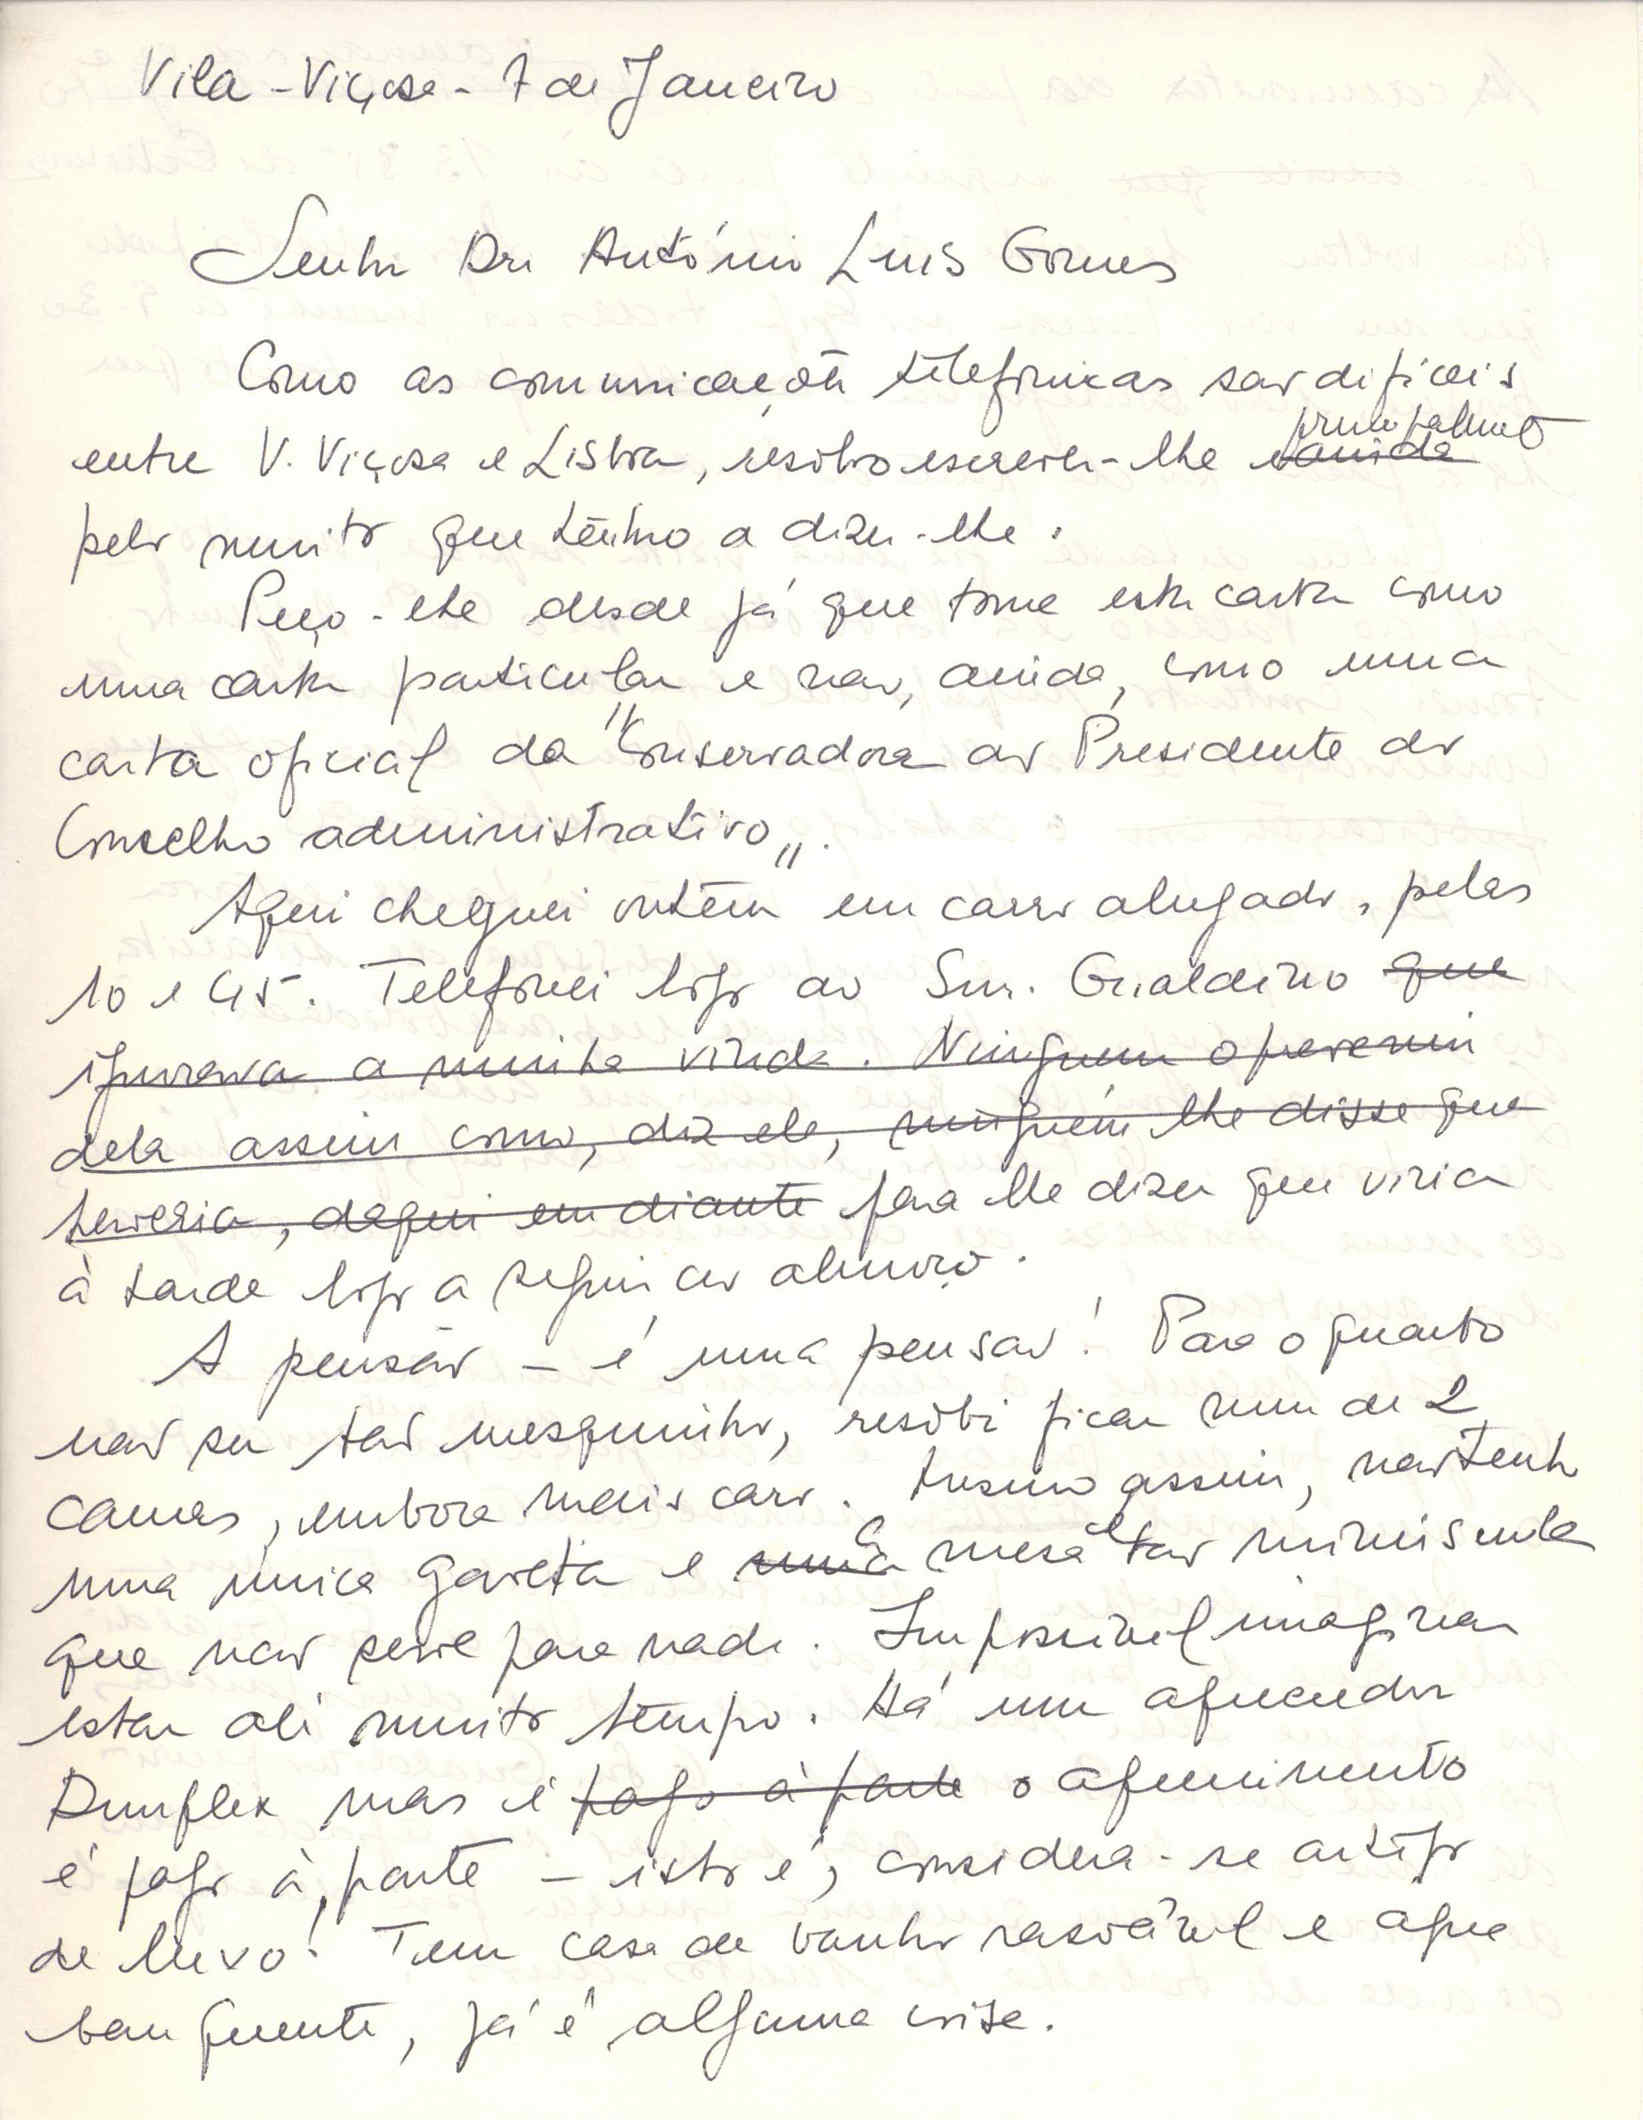 Vila-Viçosa - 7 de Janeiro
Senhor Dr. António Luis Gomes
Como as comunicações telefonicas são dificeis
principalmente
entre V. Viçosa e Lisboa, resolvo escrever-lhe e ainda
pelo muito que tenho a dizer-lhe.
Peço-lhe desde já que tome esta carta como
uma carta particular e não, ainda, como uma
carta oficial da "Conservadora ao Presidente do
Conselho administrativo".
Aqui cheguei ontem em carro alugado, pelas
10 e 45. Telefonei logo ao Snr. Gualdino que
ignorava a minha vinda. Ninguem o preveniu
dela assim como, diz ele, ninguém lhe disse que
haveria, daqui em diante para lhe dizer que viria
à tarde logo a seguir ao almoço.
A pensão - é uma pensão! Para o quarto
não ser tão mesquinho, resolvi ficar num de 2
camas, embora mais caro. Mesmo assim, não tenho
uma unica gaveta e uma a mesa é tão minuscula
que não serve para nada. Impossivel imaginar
estar ali muito tempo. Há um aquecedor
Dimplex mas é pago à parte o aquecimento
é pago à parte - isto é, considera-se artigo
de luxo! Tem casa de banho rasoável e agua
bem quente, já é alguma coisa.